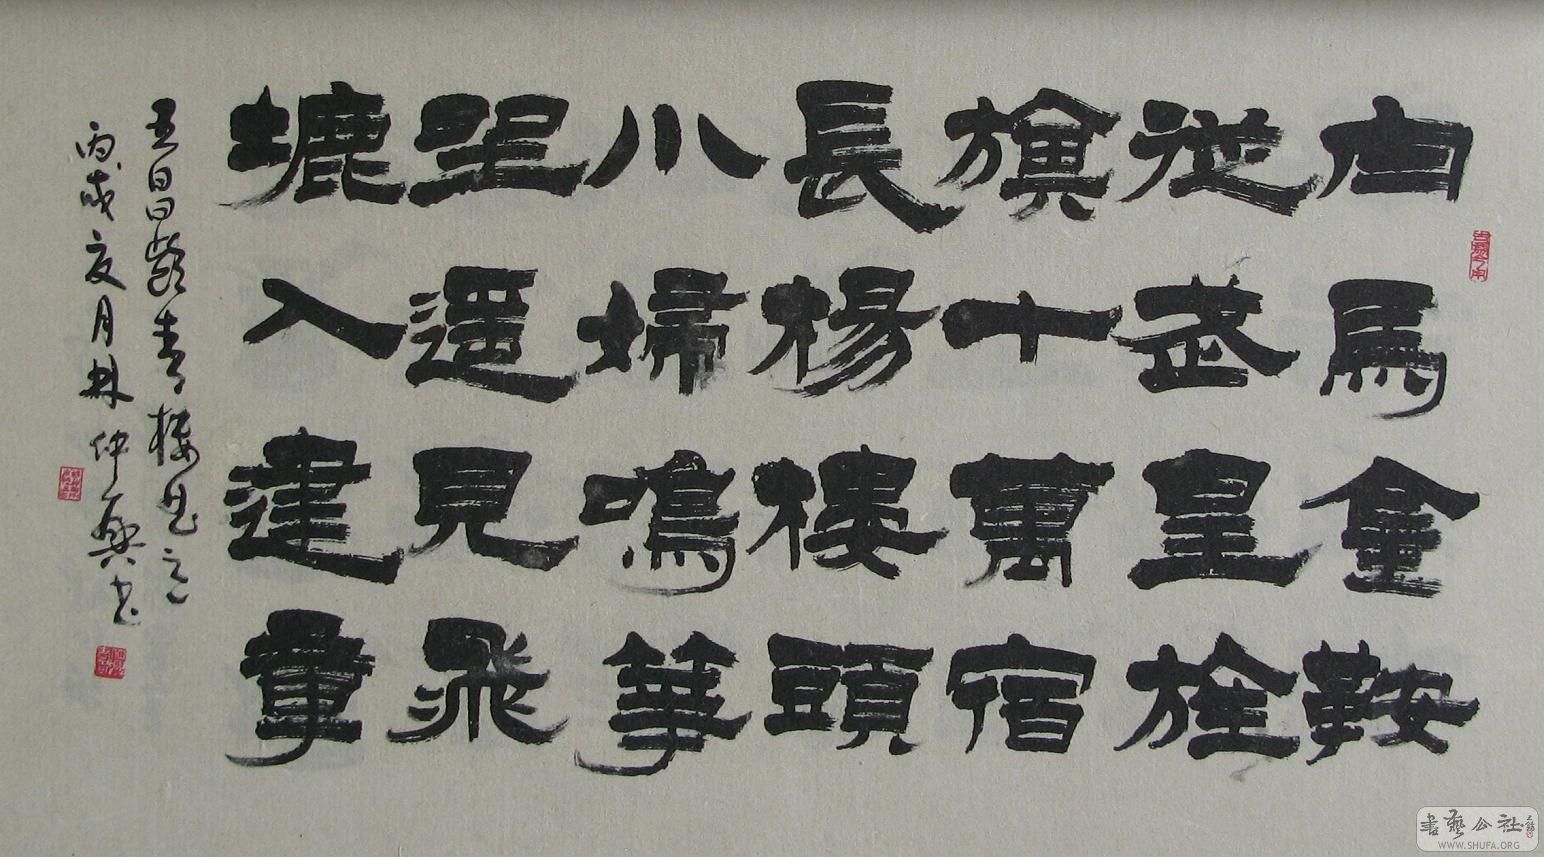 白馬金鞍
從武皇旌
旗十萬宿
長楊樓頭
小婦鳴箏
坐遥見飛
塵入建章
王昌齡青樓曲
丙戌夏月林仲興書
書藝公社
WWW.SHUFA.ORG